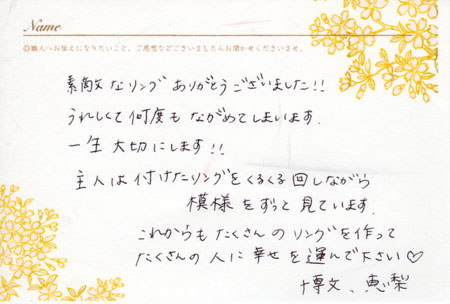 Name
◎職人へお伝えになりたいこと、ご感想などございましたらお聞かせくださいませ。
素敵なリング ありがとうございました!!
うれしくて何度もながめてしまいます.
一生大切にします!!
主人は付けたリングをくるくる回しながら
模様をずっと見ています.
これからもたくさんのリングを作って
たくさんの人に幸せを運んで下さい♡
博文、恵梨